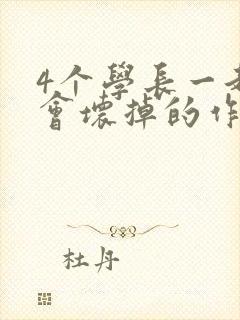 4个學長一
會壞掉的作
杜丹